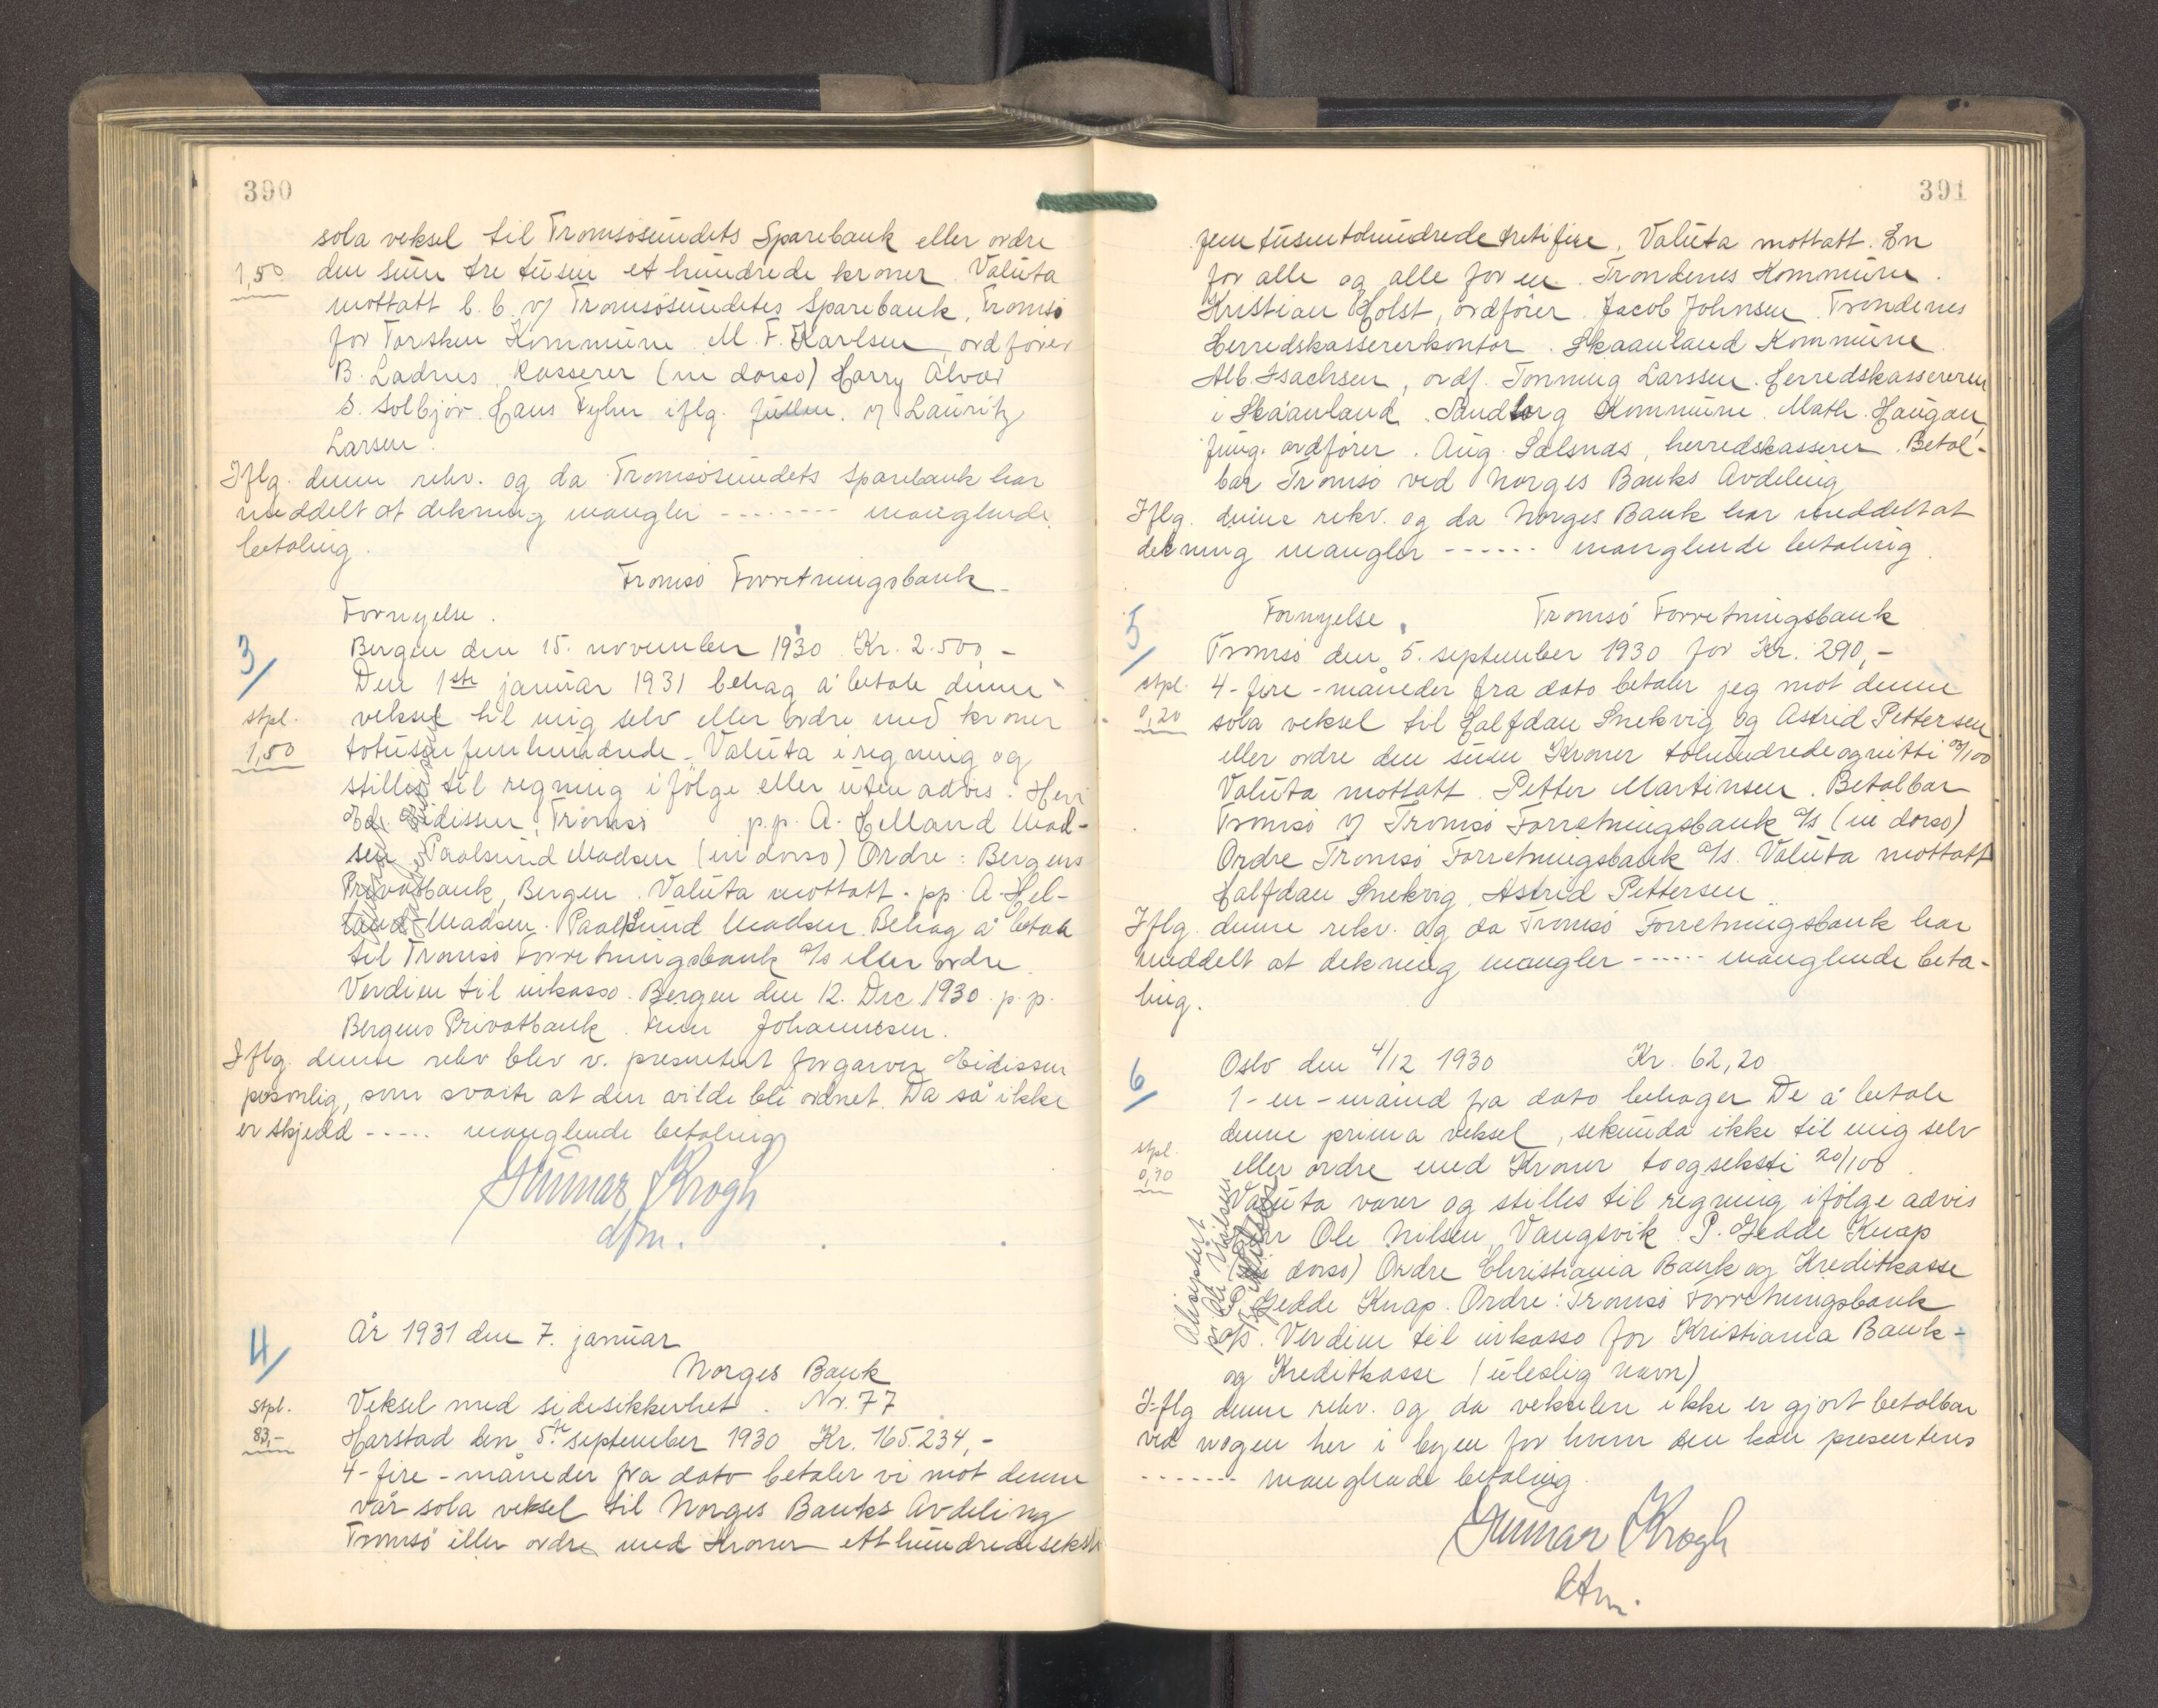 390
sola veksel til Tromsøsundets Sparebank eller ordre
1,50 den sum tre tusen et hundrede kroner. Valuta
mottatt b. b. v/ Tromsøsundets Sparebank, Tromsø
for Torsken Kommune M. F. Karlsen, ordfører
B. Ladnes, Kasserer (in dorso) Harry Alvar
S. Solbjør. Hans Fylm iflg. fullm. v/ Lauritz
Larsen.
Iflg. denne rekv. og da Tromsøsundets Sparebank har
meddelt at dekning mangler -------- manglende
betaling.
Tromsø Forretningsbank
Fornyelse.
3/ Bergen den 15. november 1930 Kr. 2.500,-
Den 1ste januar 1931 behag å betale denne
stpl. veksel til mig selv eller ordre med kroner
1,50 totusen femhundrede. Valuta i regning og
stilles til regning ifølge eller uten advis. Herr
Ed. Eidissen, Tromsø p.p. A. Helland Mad-
sen Paalsund Madsen (in dorso) Ordre: Bergens
Privatbank, Bergen. Valuta mottatt. pp. A. Hel-
land-Madsen. Paalsund Madsen. Behag å betale
til Tromsø Forretningsbank A/s eller ordre.
Verdien til inkasso. Bergen den 12. Dec. 1930. p. p.
Bergens Privatbank. Johannesen.
Iflg. denne rekv blev v. presentert for garver Eidissen
personlig, som svarte at den vilde bli ordnet. Da så ikke
er skjedd ----- manglende betaling
Gunnar Krogh
dfm.
4/ År 1931 den 7. januar
Norges Bank
Stpl. Veksel med sidesikkerhet. Nr. 77
83,- Harstad den 5te september 1930 Kr. 165.234,-
4-fire-måneder fra dato betaler vi mot denne
vår sola veksel til Norges Banks Avdeling
Tromsø eller ordre med Kroner etthundredeseksti
391
femtusentohundredetretifire. Valuta mottatt. En
for alle og alle for en. Trondenes Kommune.
Kristian Holst, ordfører. Jacob Johnsen. Trondenes
Herredskassererkontor. Skaanland Kommune
Alb. Isachsen, ordf. Tonning Larssen. Herredskassereren
i Skåanland. Sandtorg Kommune. Math. Haugan,
fung. ordfører. Aug. Sælsnas, herredskasserer. Betal-
bar Tromsø ved Norges Banks Avdeling
Iflg. denne rekv. og da Norges Bank har meddelt at
dekning mangler ------ manglende betaling.
5/ Fornyelse. Tromsø Forretningsbank
Tromsø den 5. september 1930 for Kr. 290,-
stpl. 4-fire-måneder fra dato betaler jeg mot denne
0,20 sola veksel til Halfdan Snekvig og Astrid Pettersen
eller ordre den sum Kroner tohundredeognitti 00/100
Valuta mottatt. Petter Martinsen. Betalbar
Tromsø v/ Tromsø Forretningsbank A/s (in dorso)
Ordre Tromsø Forretningsbank A/s. Valuta mottatt
Halfdan Snekvig, Astrid Pettersen.
Iflg. denne rekv. og da Tromsø Forretningsbank har
meddelt at dekning mangler ------ manglende beta-
ling.
6/ Oslo den 4/12 1930 Kr. 62,20
1-en-måned fra dato behager De å betale
denne prima veksel, sekunda ikke til mig selv
stpl. 0,10 eller ordre med Kroner toogseksti 20/100.
Valuta varer og stilles til regning ifølge advis
Herr Ole Nilsen, Vangsvik. P. Gedde Knap
(in dorso) Ordre Christiania Bank og Kreditkasse
P. Gedde Knap. Ordre: Tromsø Forretningsbank
A/s. Verdien til inkasso for Kristiania Bank-
og Kreditkasse (uleslig navn)
Akseptert
Ole Nilsen
Iflg denne rekv. og da vekselen ikke er gjort betalbar
ved nogen her i byen for hvem den kan presenteres
------ manglende betaling.
Gunnar Krogh
dfm.